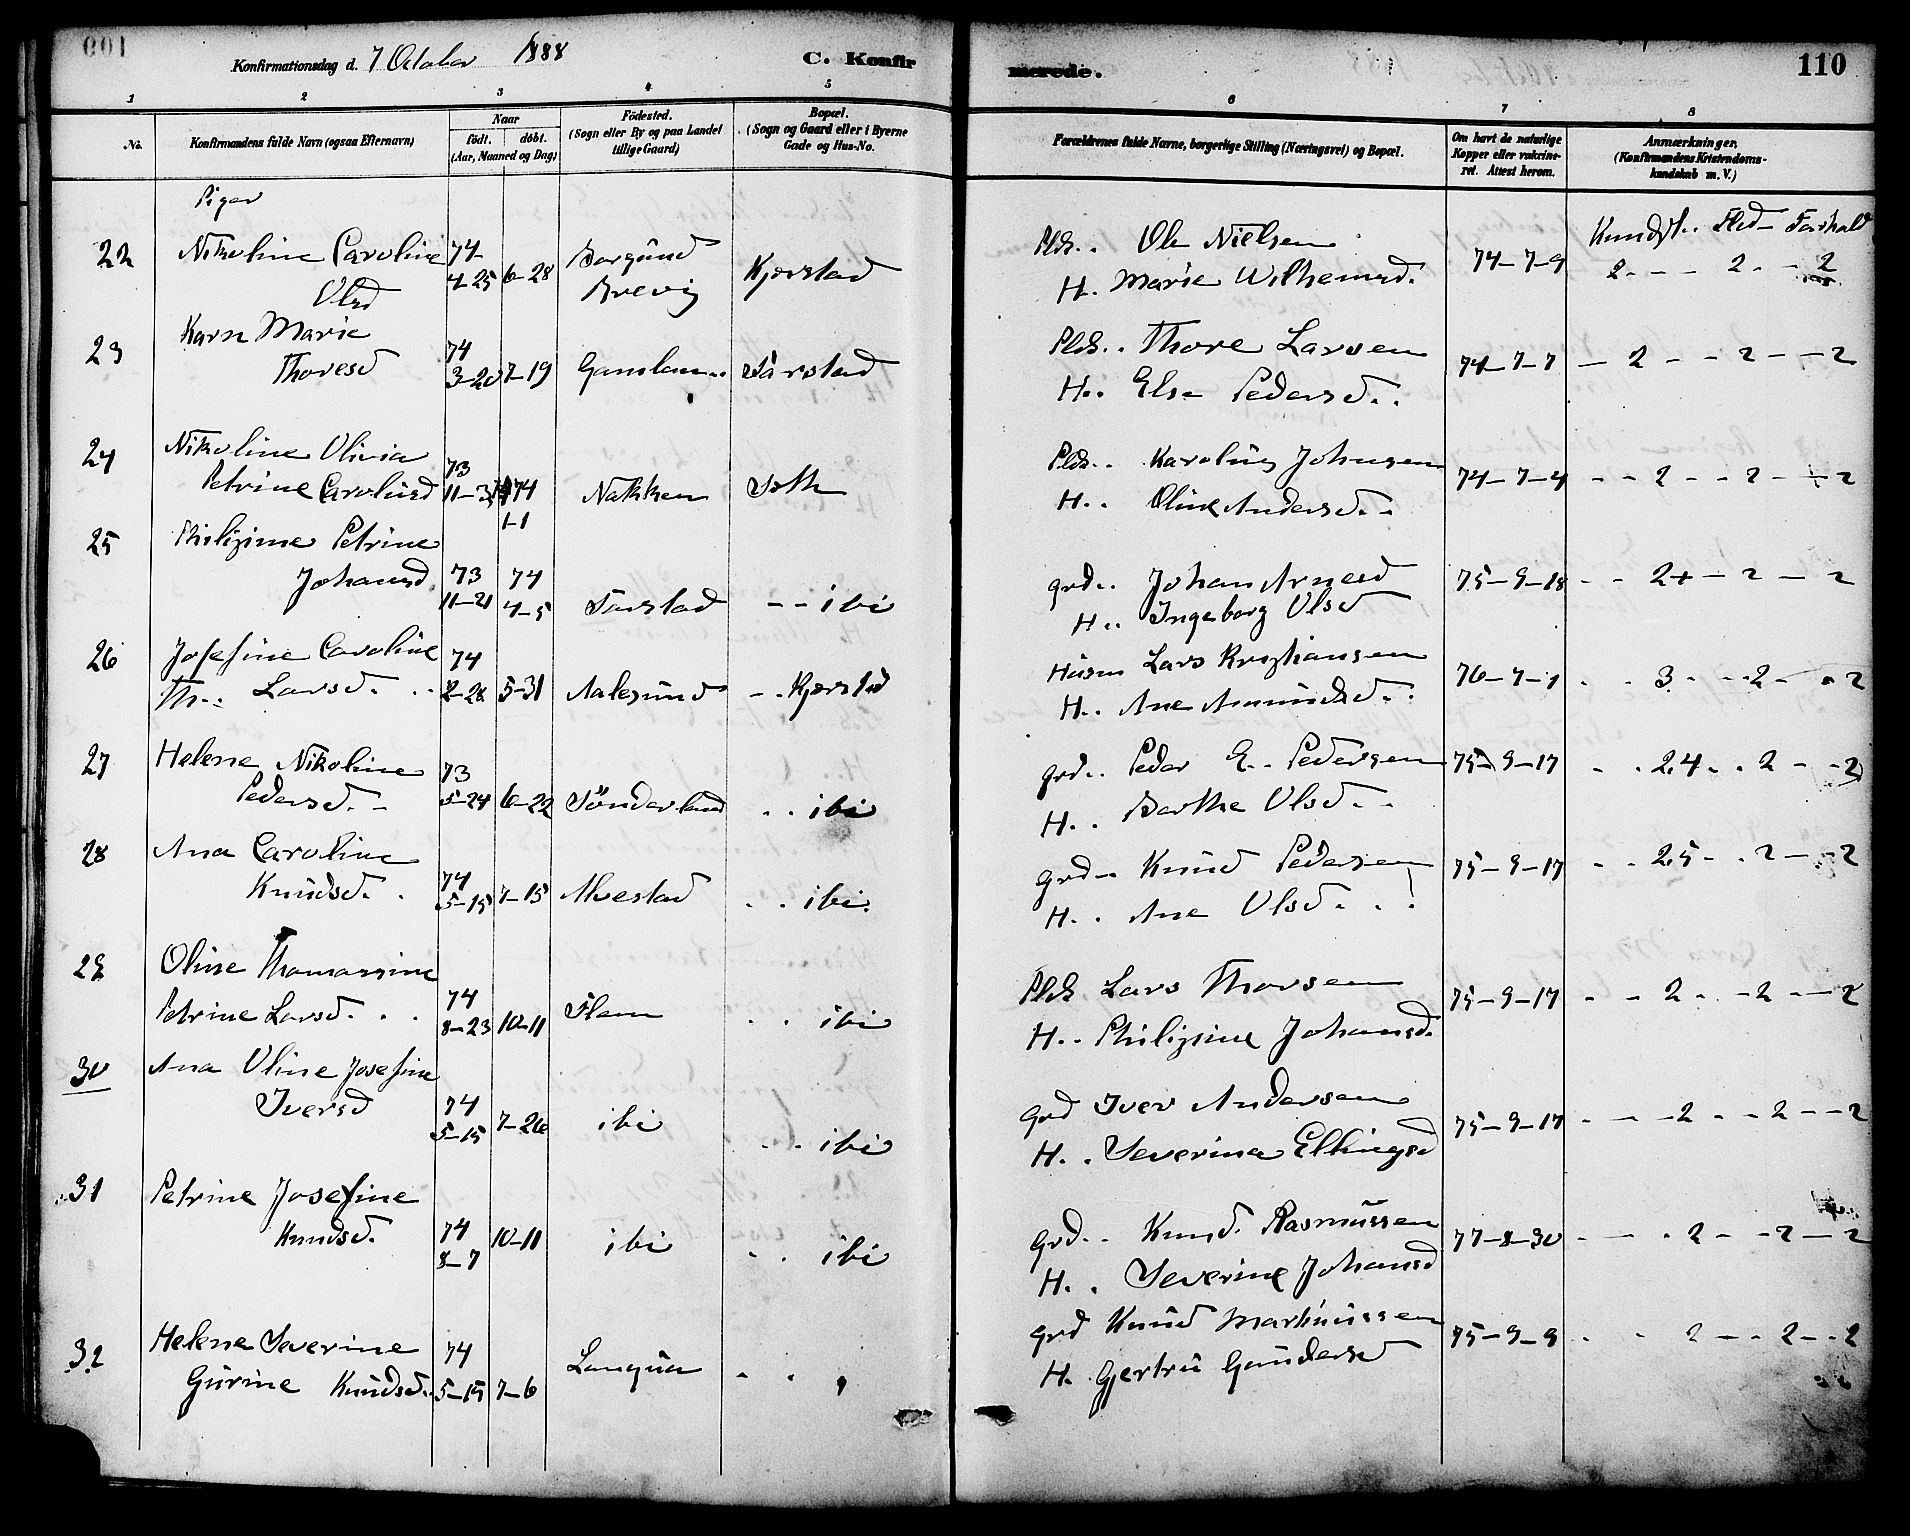 109
Konfirmationsdag d. 7 October 1888
C. Konfir
merede.
110
1 2 3 4 5 6 7 8
No.
Konfirmandens fulde Navn (ogsaa Efternavn)
Naar
födt. döbt.
(Aar, Maaned og Dag)
Födested.
(Sogn eller By og paa Landet
tillige Gaard)
Bopæl.
(Sogn og Gaard eller i Byerne
Gade og Hus-No.
Forældrenes fulde Navne, borgerlige Stilling (Næringsvei) og Bopæl.
Om havt de naturlige
Kopper eller vakcine-
ret. Attest herom.
Anmærkninger.
(Konfirmandens Kristendoms-
kundskab m. V.)
Piger
Kundsk. Flid Forhold
22 Nikoline Caroline 74 Borgund Plds.. Ole Nielsen
Olsd 4-25 6-28 Brevig Kjerstad H. Marie Wilhemsd. 74-7-9 2 - - 2 - - 2
23 Karn Marie Plds.. Thore Larsen
Thoresd 74 3-20 7-19 Gamlem.. H.. Else Pedersd.. 74-7-7 - 2 - - 2 - - 2
24 Nikoline Olivia Plds.. Karolius Johnsen
Petrine Carolusd 73 11-3 74 1-1 Nakken H.. Oline Andersd.. 74-7-4 - - 2 - - 2 - - 2
25 Philipine Petrine
Johansd. 73 11-21 74 4-5 Tarstad - - ibi grd.. Johan Arnesd 75-9-18 - - 2+ - 2 - 2
H.. Ingeborg Olsd
26 Josefine Caroline 74 Husm Lars Kristiansen
Th.. Larsd. .. 2-28 5-31 Aalesund - . Kjerstad H.. Ane Amundsd.. 76-7-1 . . 3 . - . 2 - . 2
27 Helene Nikoline 73 grd.. Peder E.. Pedersen
Pedersd. - 5-24 6-22 Sönderland . . ibi H.. Barthe Olsd. . 75-9-17 - . 2.4 . . 2 - - 2
28 Ana Caroline grd.. Knud Pedersen
Knudsd. . 74 5-15 7-15 Alvestad . . ibi. H.. Ane Olsd. . . 75-9-17 - . 2.5 - . 2 - - 2
29 Oline Thomassine Plds Lars Thorsen
Petrine Larsd. . . 74 8-23 10-11 Flem . . ibi H.. Philipine Johansd. 75-9-17 - - 2 - . - 2 - - 2
30 Ana Oline Josefine grd Iver Andersen
Iversd 74 5-15 7-26 ibi . . ibi H.. Severina Ellingsd 75-9-17 - - - 2 - . - 2 - - 2
31 Petrine Josefine
Knudsd. 74 8-7 10-11 ibi . . ibi Grd.. Knud. Rasmussen 77-8-30 - - . 2 - - 2 - 2
H.. Severine Johansd
32 Helene Severine 74 grd Knud Martinussen
Gurine Knudsd. 5-15 7-6 . . , H. Gjertru Gundersd 75-9-9 . . 2 - - 2 - - 2